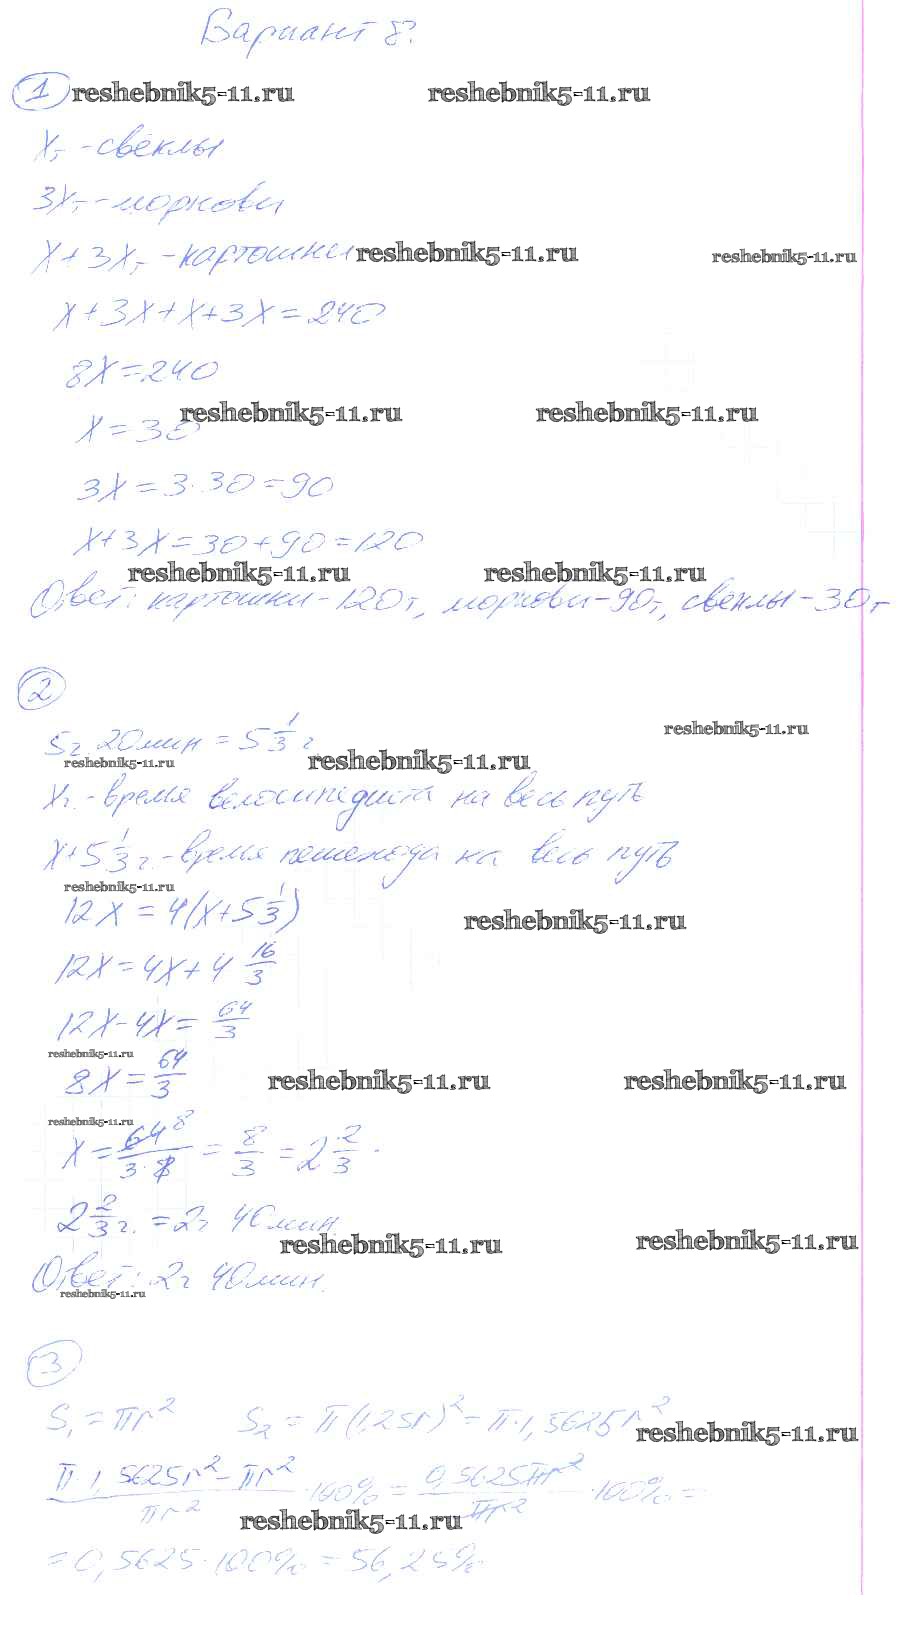 Вариант 8.
1 reshebnik5-11.ru reshebnik5-11.ru
xт - свёклы
3xт - моркови
x+3xт - картошки reshebnik5-11.ru reshebnik5-11.ru
x+3x+x+3x=240
8x=240
x=30 reshebnik5-11.ru reshebnik5-11.ru
3x=3·30=90
x+3x=30+90=120
reshebnik5-11.ru reshebnik5-11.ru
Ответ: картошки-120т, моркови-90т, свёклы-30т
2
5ч 20мин = 5 1/3 ч reshebnik5-11.ru
reshebnik5-11.ru reshebnik5-11.ru
xч. - время велосипедиста на весь путь
x+5 1/3 ч. - время пешехода на весь путь
reshebnik5-11.ru
12x=4(x+5 1/3) reshebnik5-11.ru
12x=4x+4 16/3
12x-4x=64/3
reshebnik5-11.ru
8x=64/3 reshebnik5-11.ru reshebnik5-11.ru
reshebnik5-11.ru
x=64 8/3·8=8/3=2 2/3.
2 2/3 ч.=2ч 40мин
reshebnik5-11.ru reshebnik5-11.ru
Ответ: 2ч 40мин.
reshebnik5-11.ru
3
S₁=πr² S₂=π(1,25r)²=π·1,5625r²
reshebnik5-11.ru
π·1,5625r²-πr²/πr²·100%=0,5625πr²/πr²·100%=
reshebnik5-11.ru
=0,5625·100%=56,25%